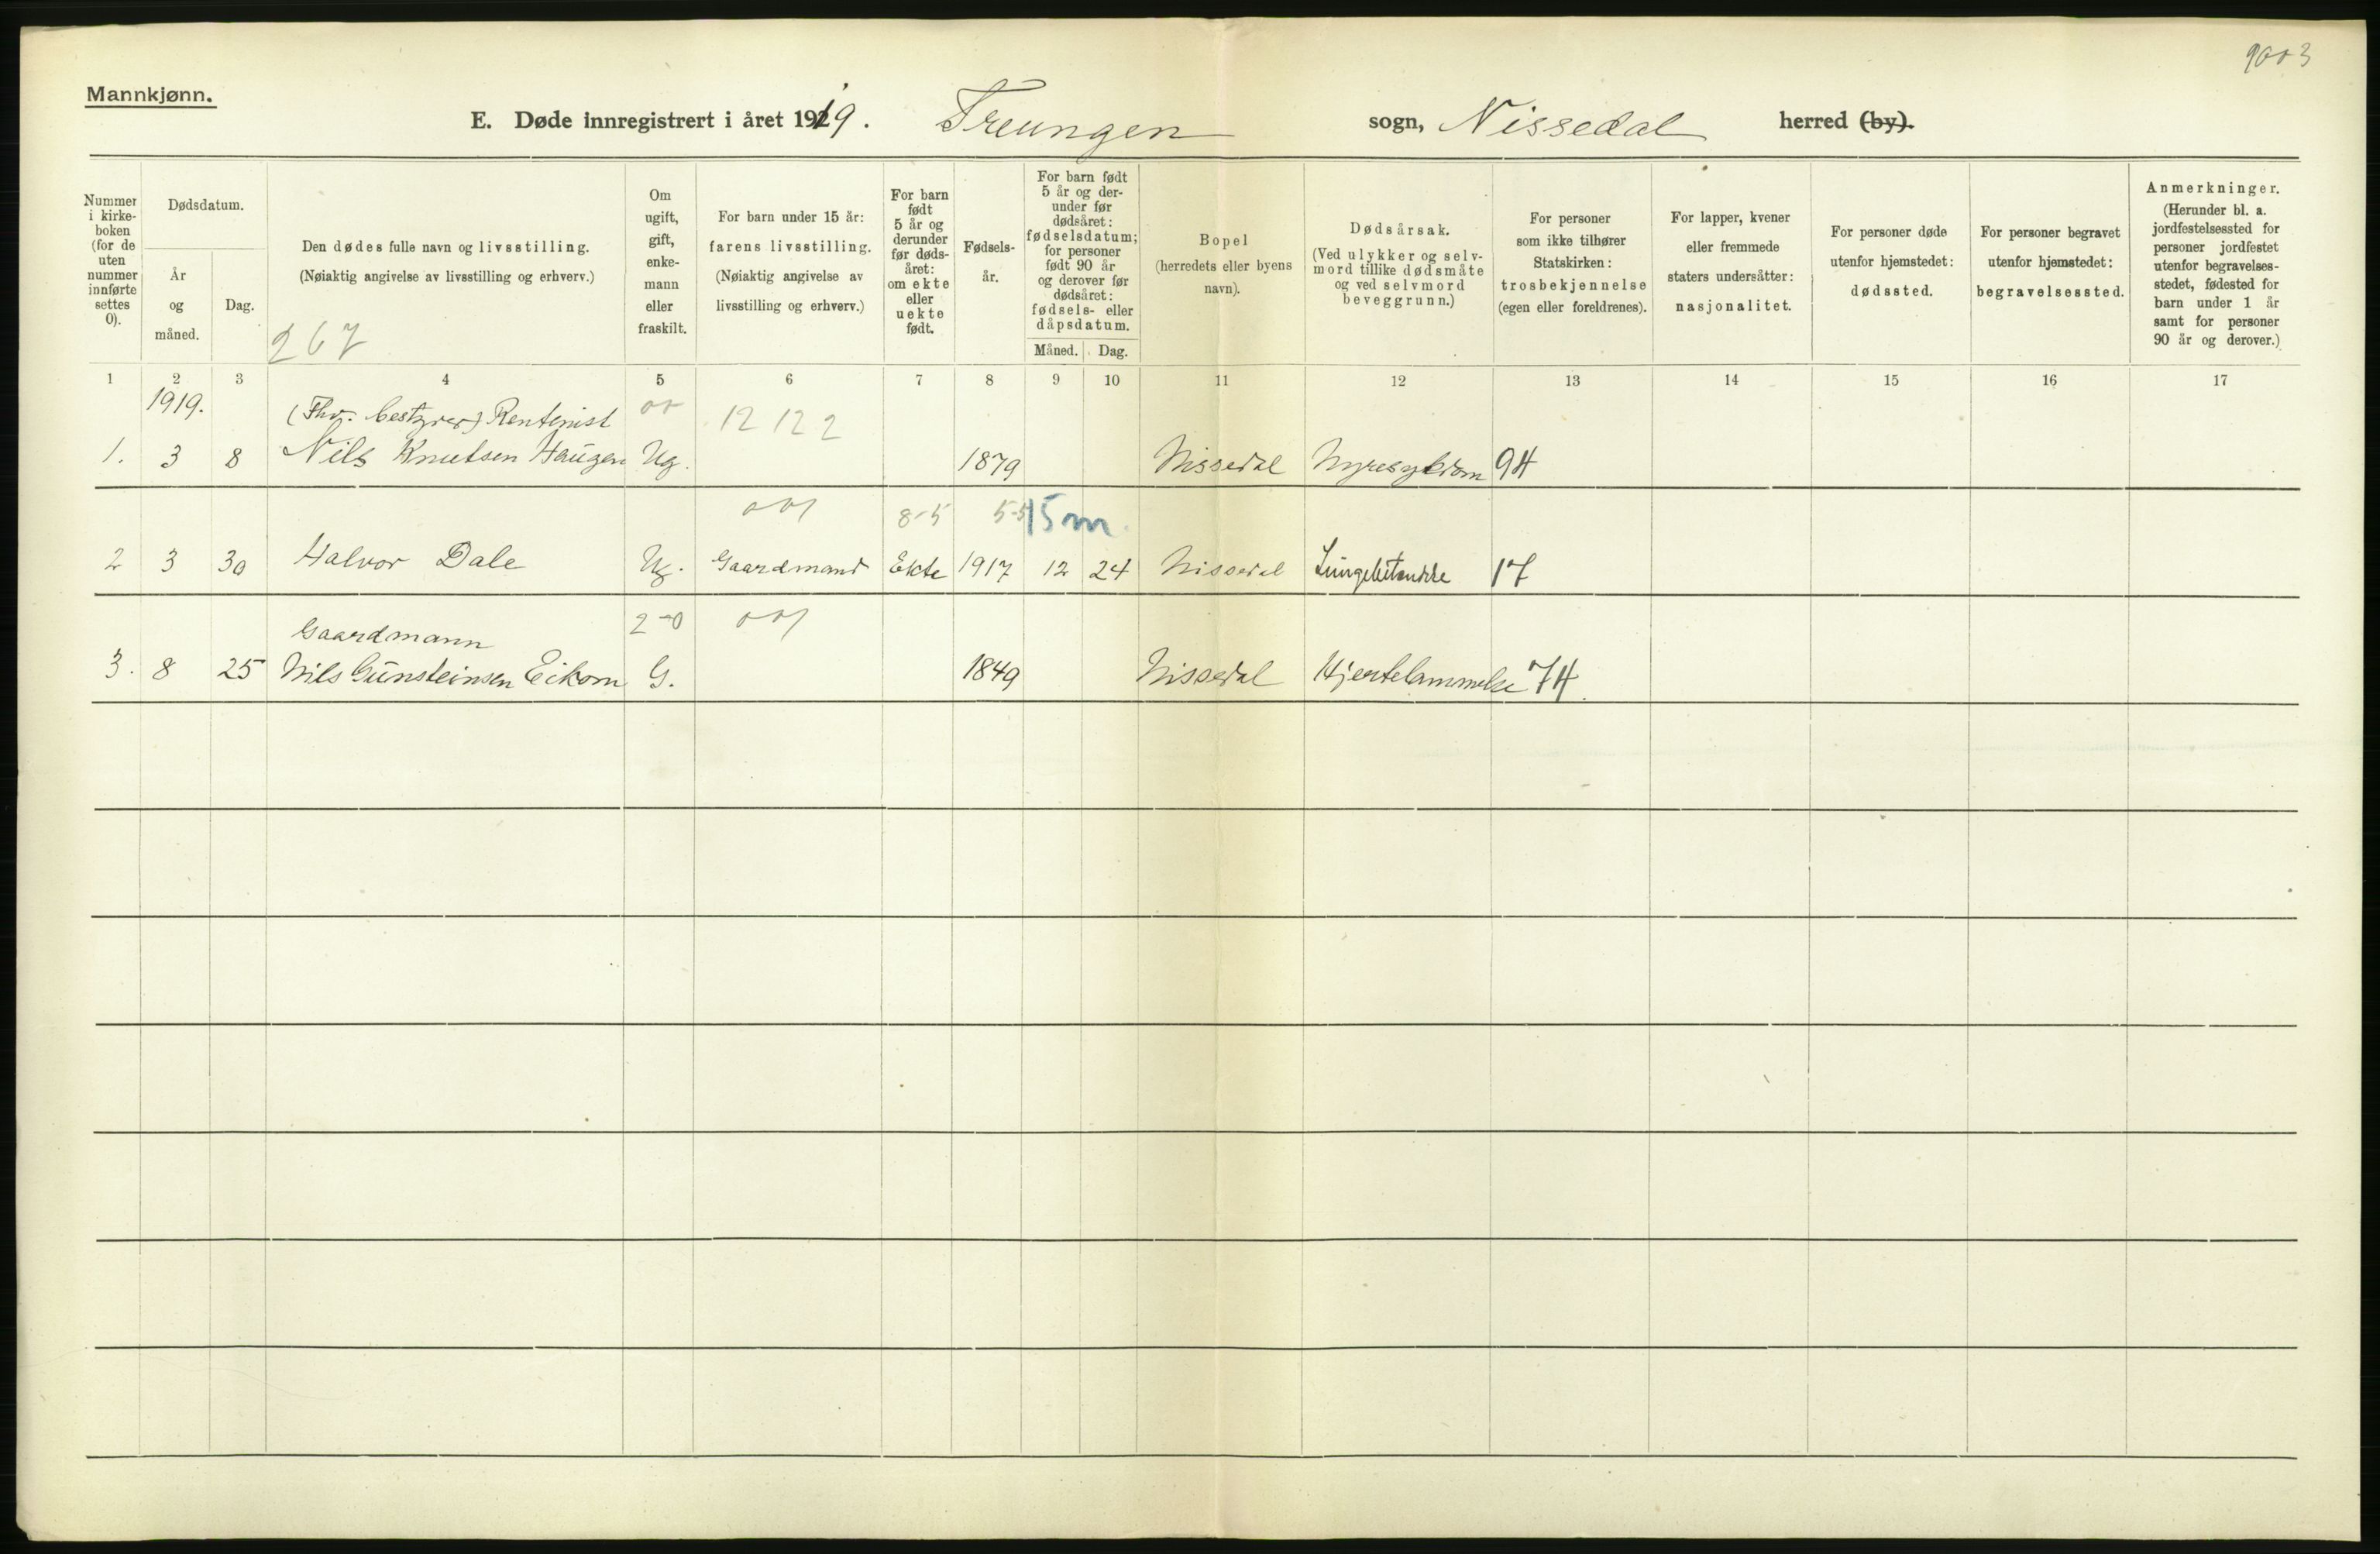 9003
Mannkjønn.
E. Døde innregistrert i året 1919. Treungen sogn, Nissedal herred (by).
Nummer i kirke- boken (for de uten nummer innførte settes 0).
Dødsdatum.
År og måned.
Dag.
Den dødes fulle navn og livsstilling.
(Nøiaktig angivelse av livsstilling og erhverv.)
267
Om ugift, gift, enke- mann eller fraskilt.
For barn under 15 år:
farens livsstilling.
(Nøiaktig angivelse av
livsstilling og erhverv.)
For barn født 5 år og derunder før døds- året: om ekte eller uekte født.
Fødsels- år.
For barn født 5 år og der- under før dødsåret: fødselsdatum; for personer født 90 år og derover før dødsåret: fødsels- eller dåpsdatum.
Måned. Dag.
Bopel
(herredets eller byens
navn).
Dødsårsak.
(Ved ulykker og selv-
mord tillike dødsmåte
og ved selvmord
beveggrunn.)
For personer
som ikke tilhører
Statskirken:
trosbekjennelse
(egen eller foreldrenes).
For lapper, kvener
eller fremmede
staters undersåtter:
nasjonalitet.
For personer døde
utenfor hjemstedet:
dødssted.
For personer begravet
utenfor hjemstedet:
begravelsessted.
Anmerkninger.
(Herunder bl. a.
jordfestelsessted for
personer jordfestet
utenfor begravelses-
stedet, fødested for
barn under 1 år
samt for personer
90 år og derover.)
1 2 3 4 5 6 7 8 9 10 11 12 13 14 15 16 17
1919. (Fhv. bestyrer) Rentenist 12 12 2
1. 3 8 Nils Knutsen Haugen Ug. 1879 Nissedal Nyresykdom 94
001 8-5 5-5 15 m.
2 3 30 Halvor Dale Ug. Gaardmand Ekte 1917 12 24 Nissedal Lungebetændelse 17
Gaardmann 2-0 001
3. 8 25 Nils Gunsteinsen Eikom G. 1849 Nissedal Hjertelammelse 74